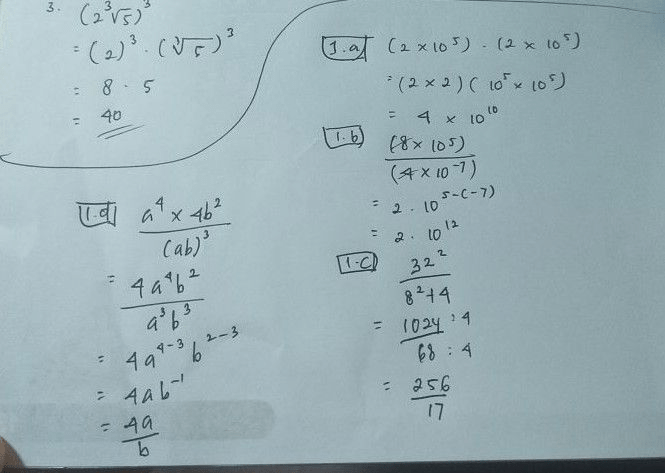 3. (2∛5)³
= (2)³ · (∛5)³
= 8 · 5
= 40
1.a (2 × 10⁵) · (2 × 10⁵)
= (2 × 2) ( 10⁵ × 10⁵)
= 4 × 10¹⁰
1.b (8 × 10⁵)
(4 × 10⁻⁷)
= 2 . 10⁵⁻⁽⁻⁷⁾
= 2 . 10¹²
1.c 32²
8²+4
= 1024 : 4
68 : 4
= 256
17
1.d a⁴ × 4b²
(ab)³
= 4a⁴b²
a³b³
= 4a⁴⁻³ b²⁻³
= 4ab⁻¹
= 4a
b